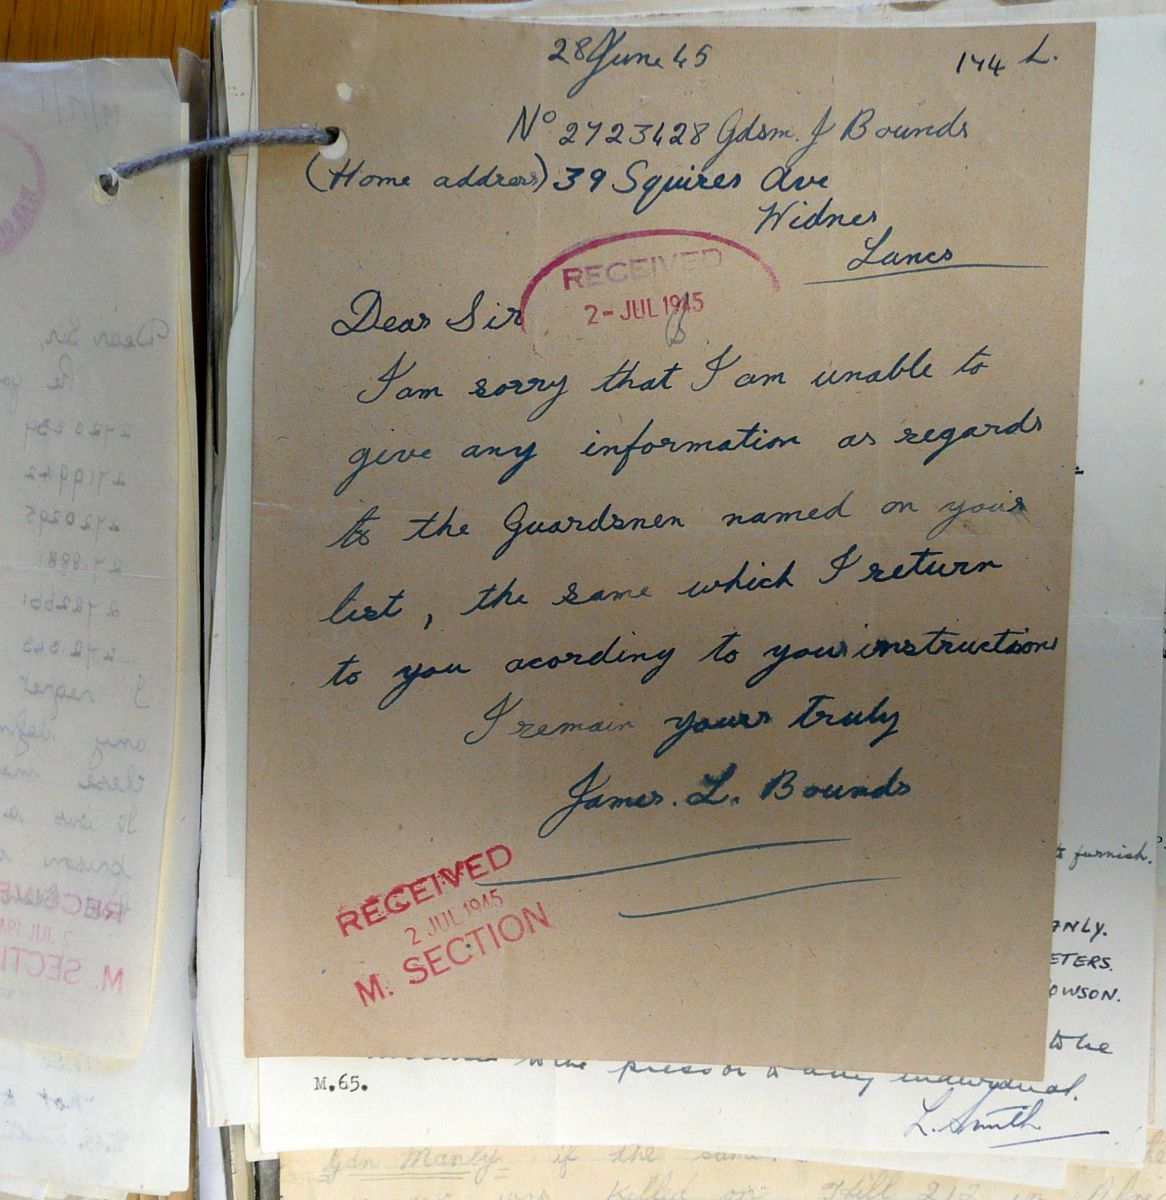 28 June 45
144 L.
No 2723428 Gdsm. J Bounds
(Home address) 39 Squires Ave
Widnes
Lancs
RECEIVED
2-JUL 1945
Dear Sir
I am sorry that I am unable to
give any information as regards
to the Guardsmen named on your
list, the same which I return
to you acording to your instructions
I remain yours truly
James. L. Bounds
RECEIVED
2 JUL 1945
M. SECTION
furnish.
ANLY.
ETERS.
OWSON.
to be
to the press or to any individual.
M.65.
L. Smith
Gdn Manly if the same
was killed on Hill 212 in
Dear Sir,
Re yo
I regret
any defin
these me
RECEIVE
2 JUL 194
M. SECTI
not